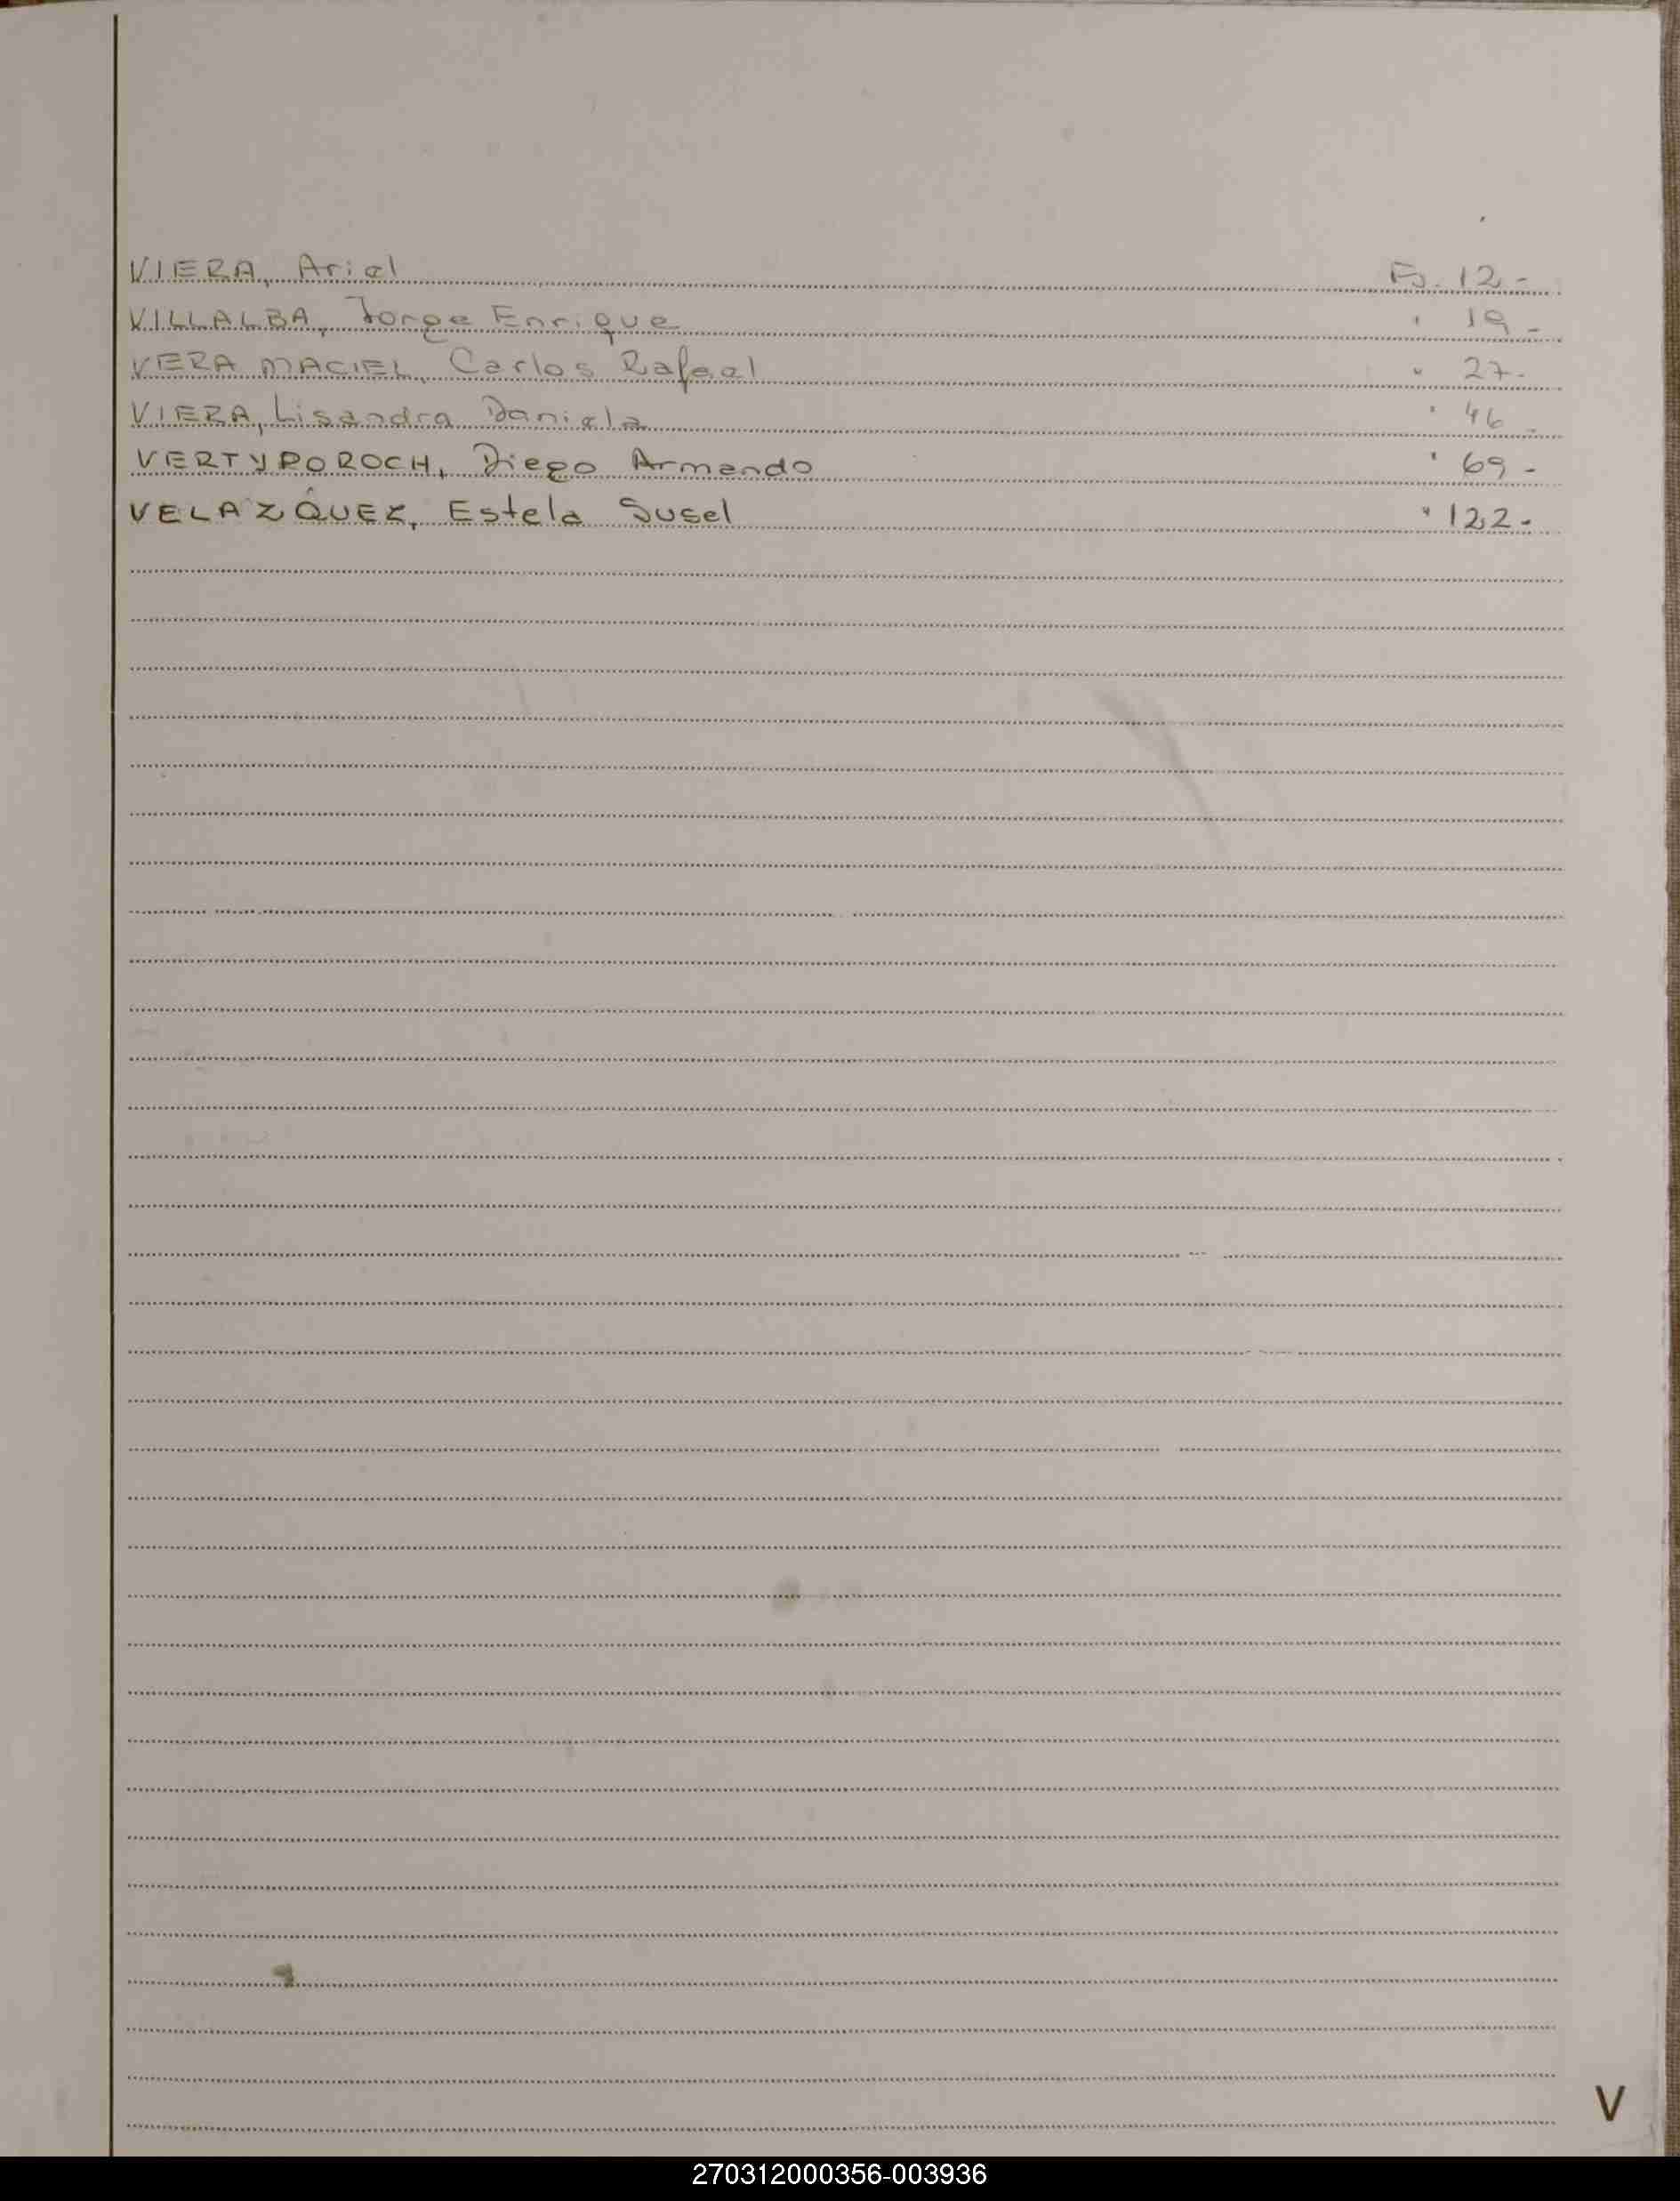 VIERA, Ariel Fs. 12-
VILLALBA, Jorge Enrique " 19-
VERA MACIEL, Carlos Rafael " 27-
VIERA, Lisandra Daniela " 46-
VERTYPOROCH, Diego Armando " 69-
VELAZQUEZ, Estela Susel " 122-
V
270312000356-003936